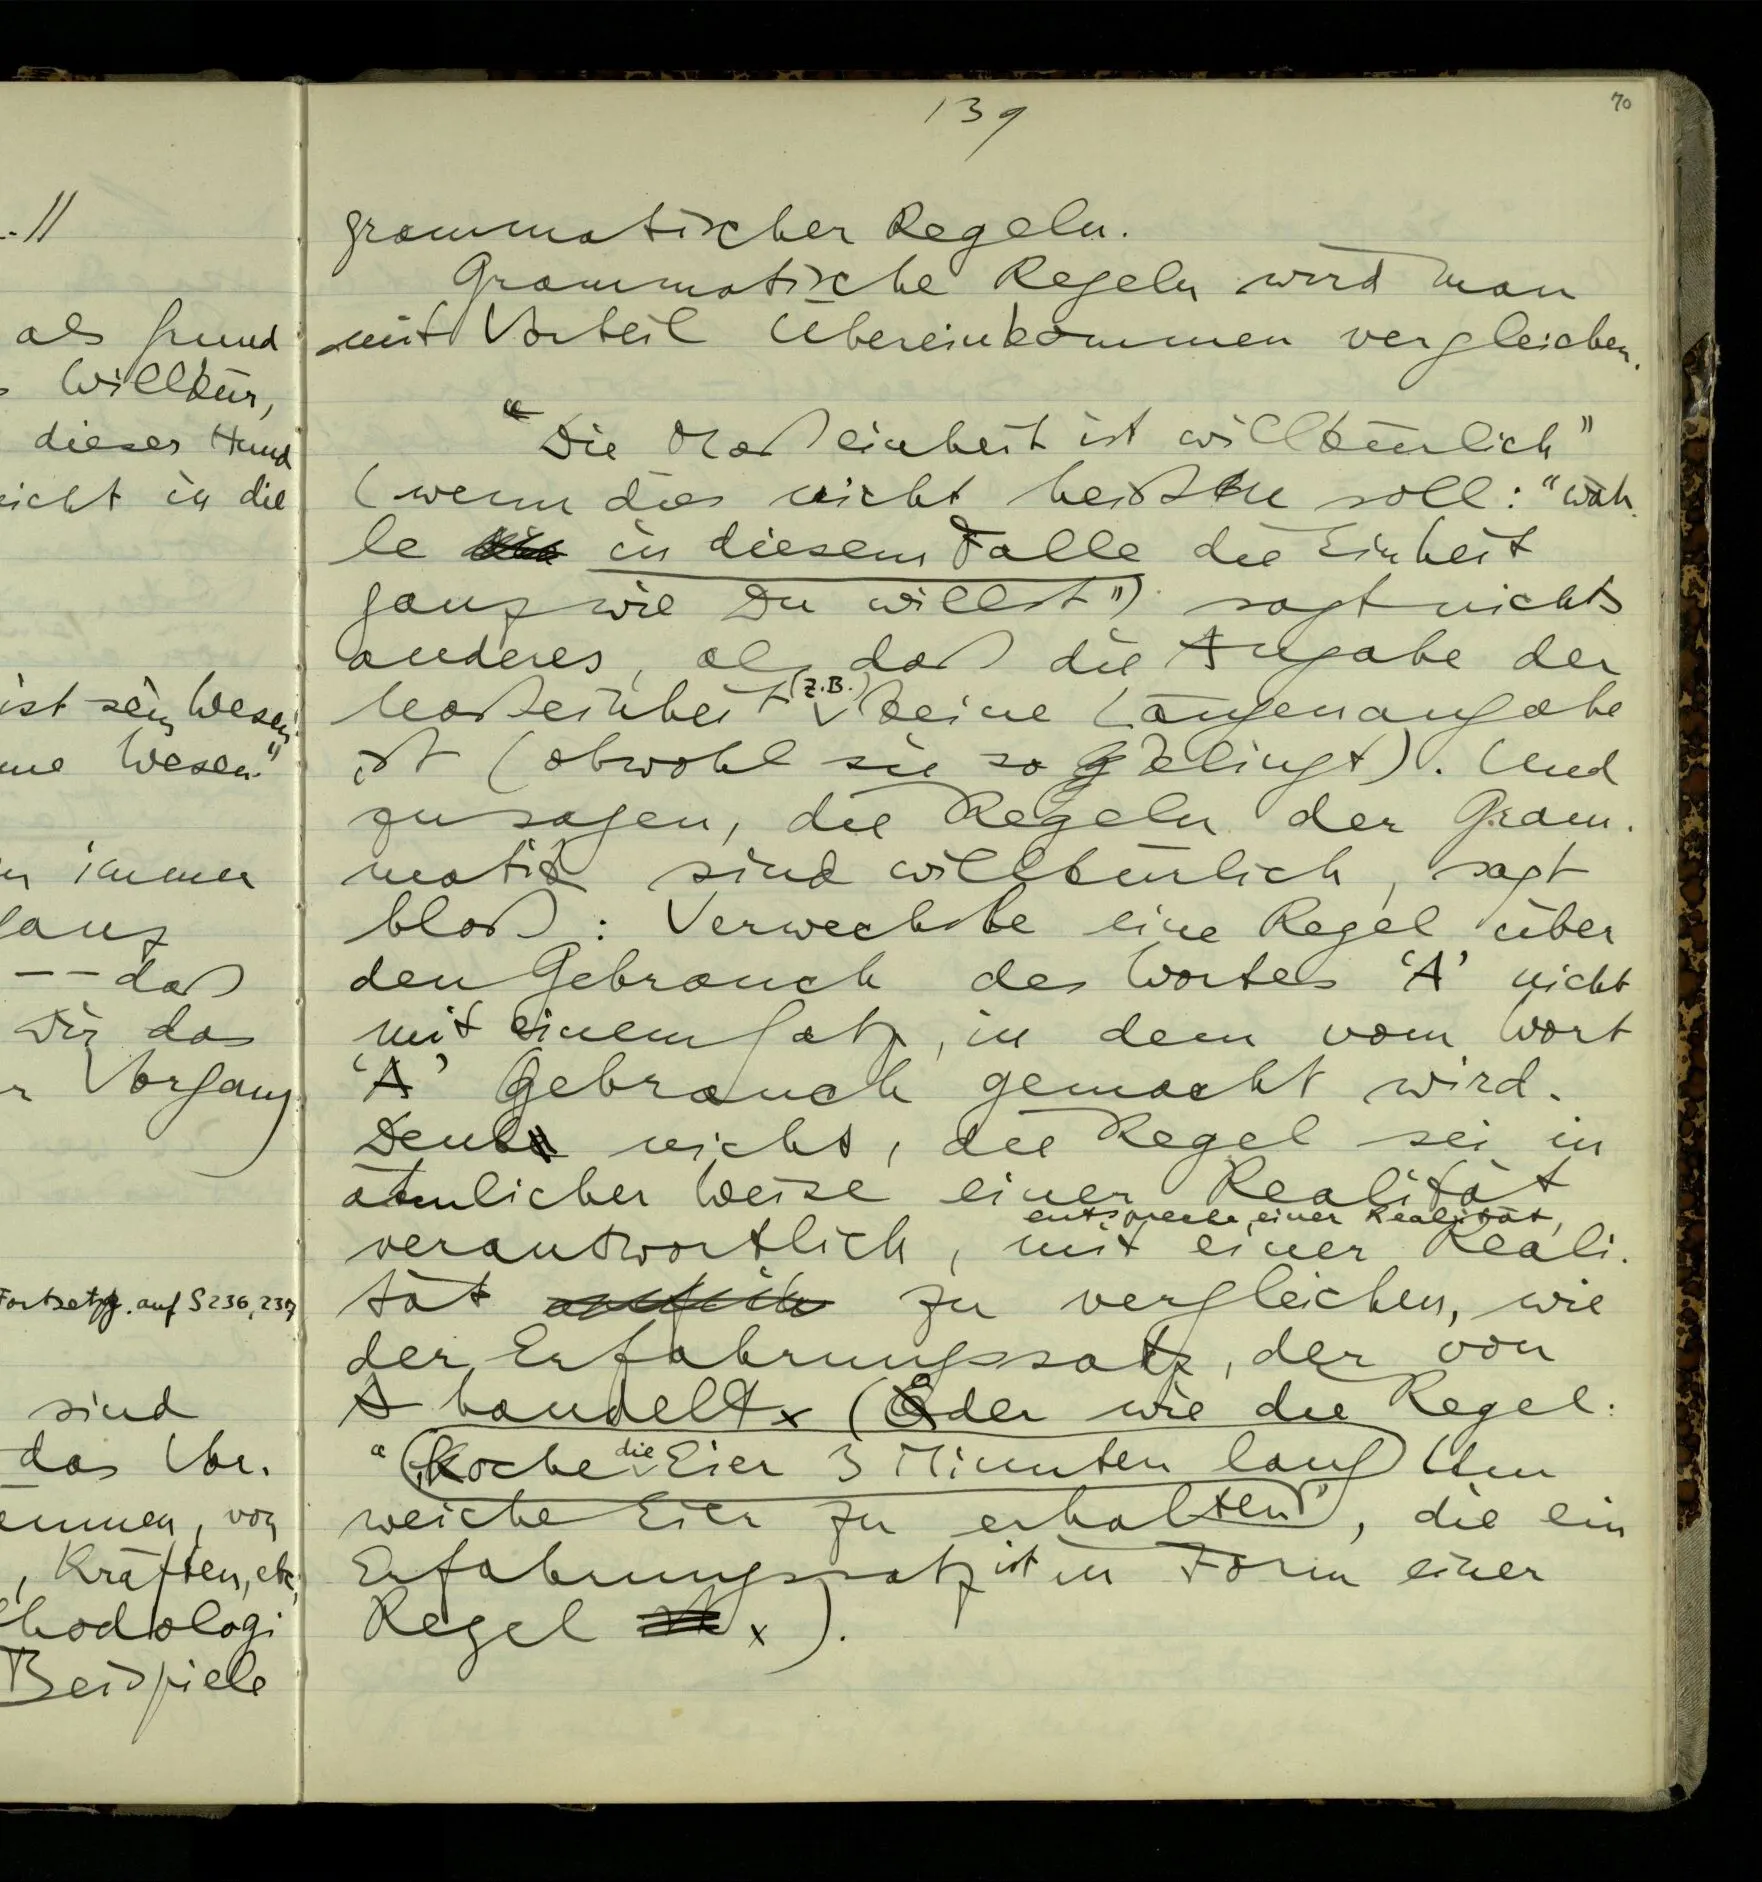 139
70
grammatischer Regeln.
Grammatische Regeln wird man
mit Vorteil Übereinkommen vergleichen.
"Die Maßeinheit ist willkürlich"
(wenn das nicht heißen soll: "wäh-
le in diesem Falle die Einheit
ganz wie Du willst") sagt nichts
anderes, als daß die Angabe der
Maßeinheit (z.B.) keine Längenangabe
ist (obwohl sie so klingt). Und
zu sagen, die Regeln der Gram-
matik sind willkürlich, sagt
bloß: Verwechsle eine Regel über
den Gebrauch des Wortes 'A' nicht
mit einem Satz, in dem vom Wort
'A' Gebrauch gemacht wird.
Denke nicht, die Regel sei in
ähnlicher Weise einer Realität
entspreche einer Realität,
verantwortlich, mit einer Reali-
tät zu vergleichen, wie
der Erfahrungssatz, der von
A handelt x (Oder wie die Regel:
"Koche die Eier 3 Minuten lang um
weiche Eier zu erhalten", die ein
Erfahrungssatz ist in Form einer
Regel x).
.//
als Grund
Willkür,
dieser Hund
nicht in die
ist sein Wesen
Wesen."
immer
ganz
-- daß
Dir das
Vorgang
Fortsetzg. auf S 236, 237
sind
das Vor-
von
, Kräften, etc,
thodologi
Beispiele